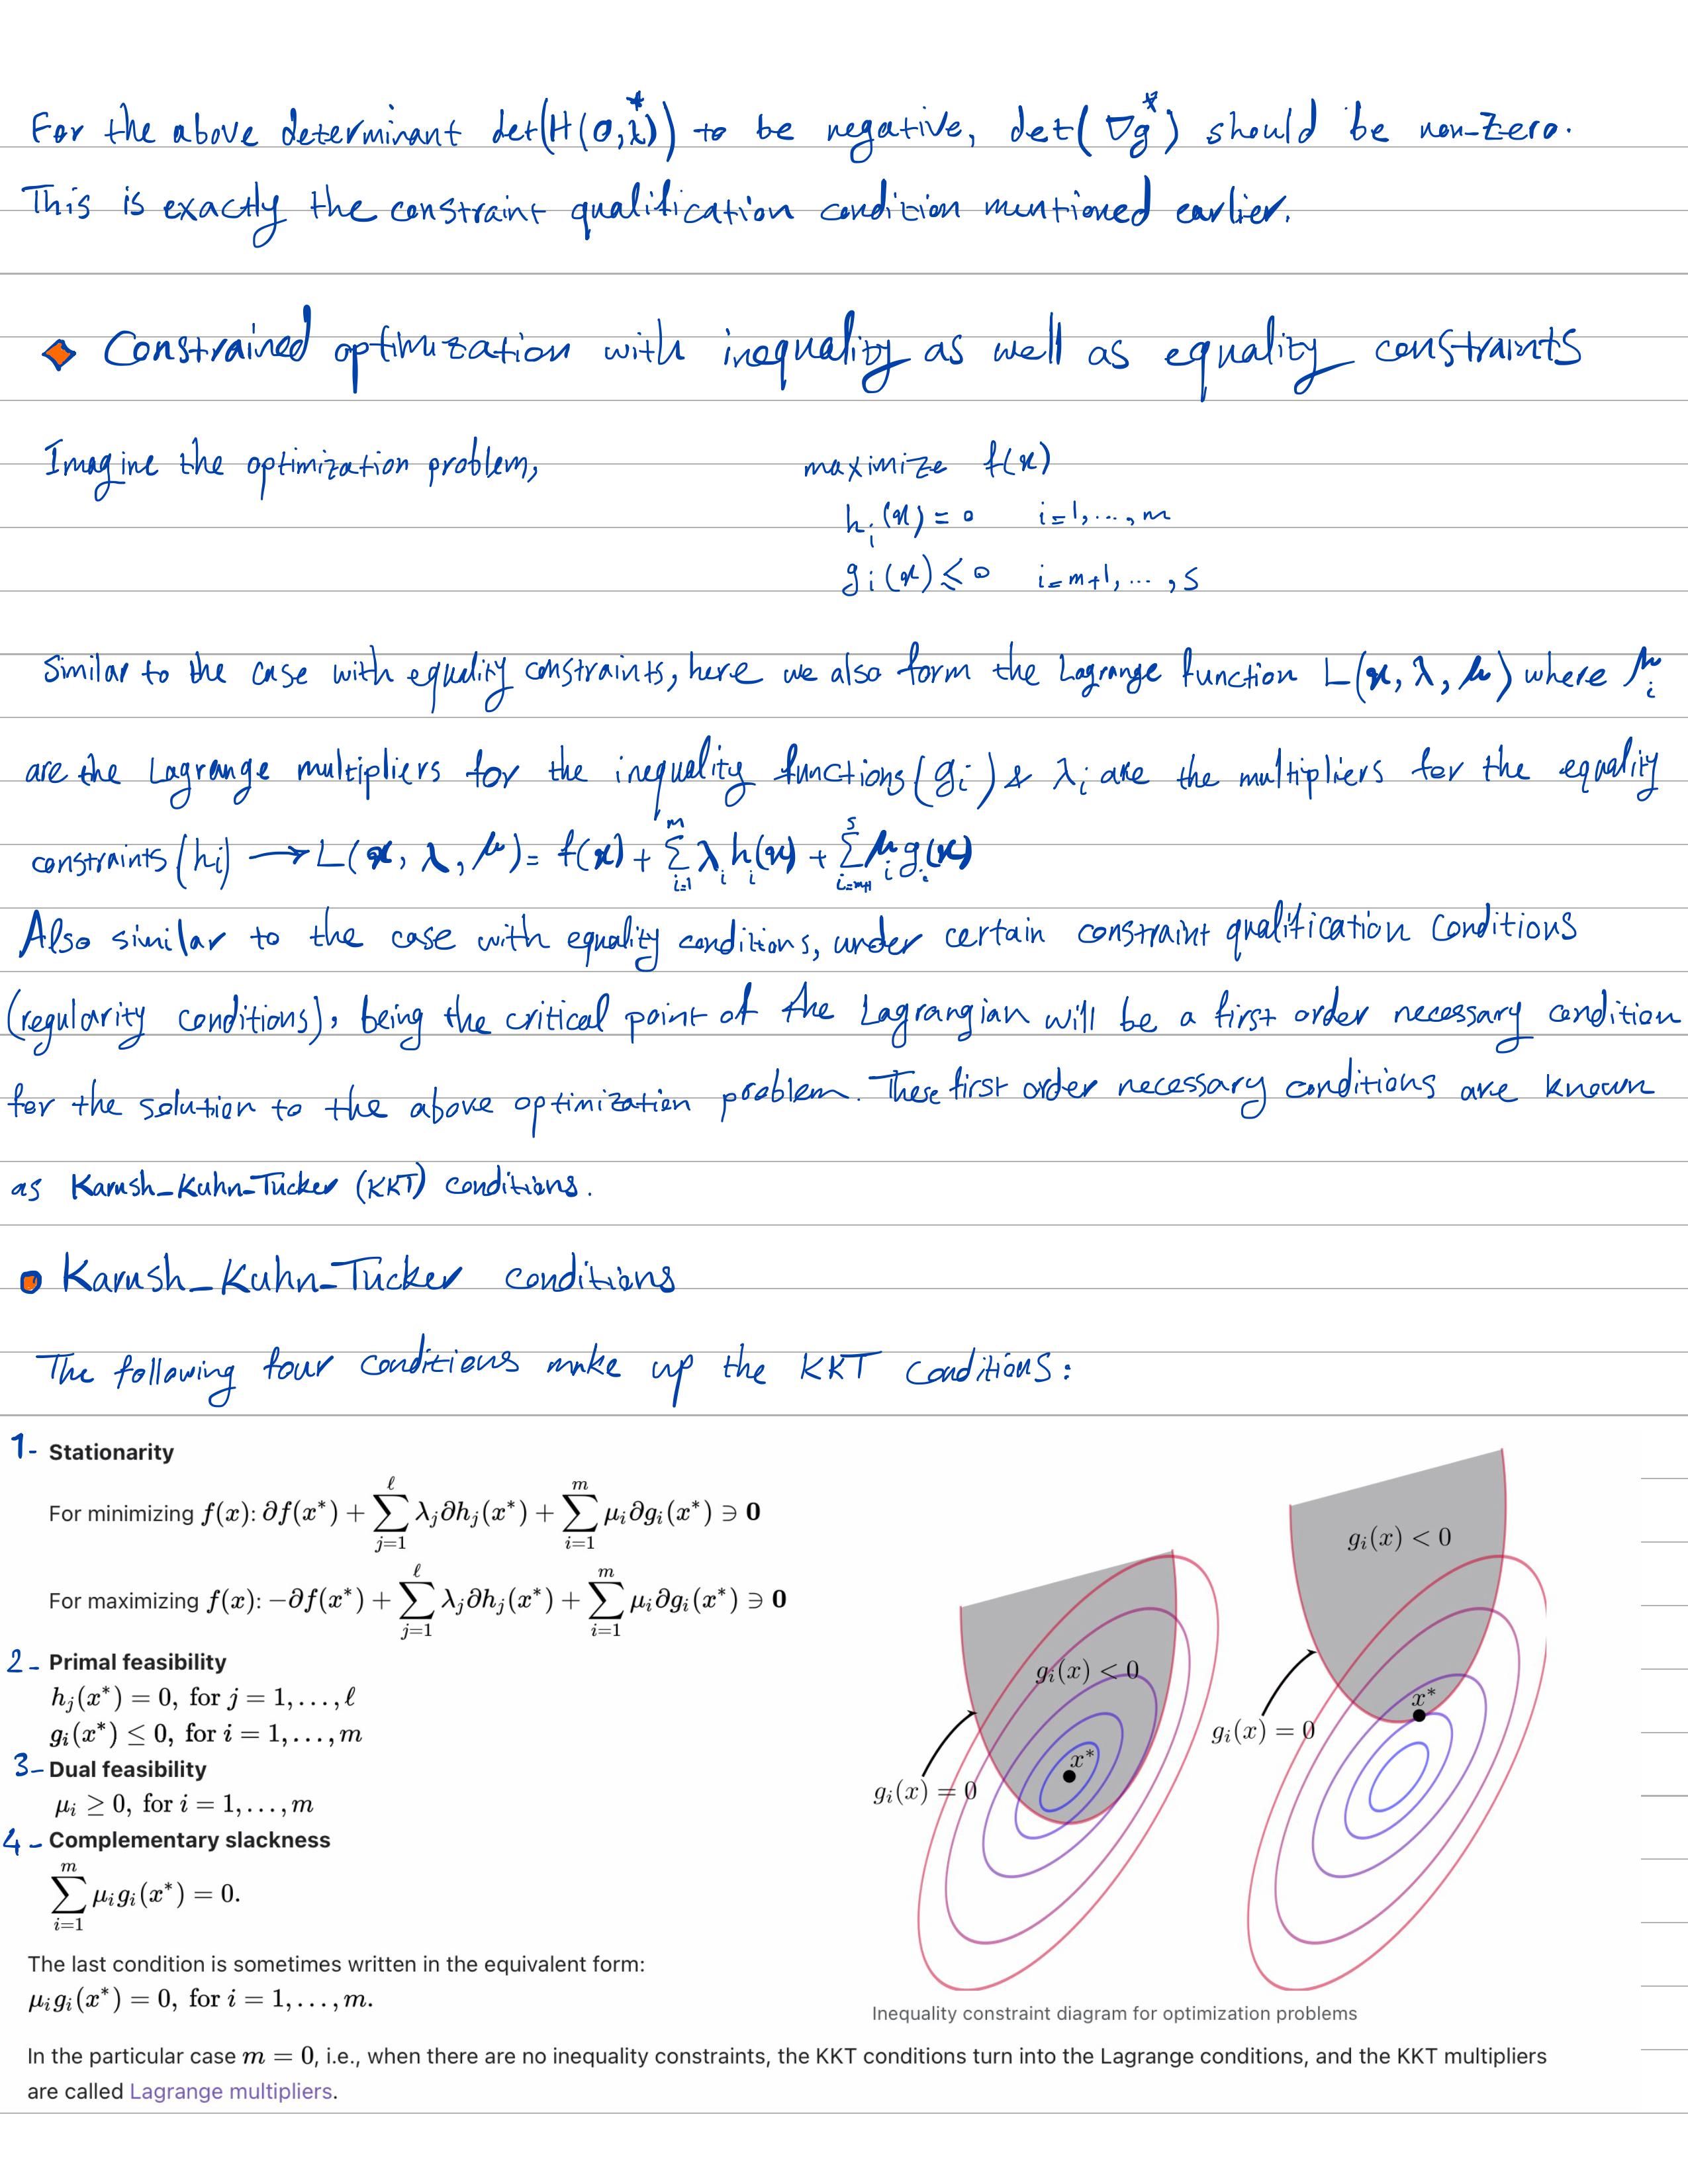 For the above determinant det(H(0,λ*)) to be negative, det(∇g*) should be non-Zero.
This is exactly the constraint qualification condition mentioned earlier.
Constrained optimization with inequality as well as equality constraints
Imagine the optimization problem, maximize f(x)
hᵢ(x) = 0 i=1,...,m
gᵢ(x) ≤ 0 i=m+1,...,s
Similar to the case with equality constraints, here we also form the Lagrange function L(x, λ, μ) where μᵢ
are the Lagrange multipliers for the inequality functions (gᵢ) & λᵢ are the multipliers for the equality
constraints (hi) → L(x, λ, μ) = f(x) + ∑_{i=1}^{m} λᵢ hᵢ(x) + ∑_{i=m+1}^{s} μᵢ gᵢ(x)
Also similar to the case with equality conditions, under certain constraint qualification conditions
(regularity conditions), being the critical point of the Lagrangian will be a first order necessary condition
for the solution to the above optimization problem. These first order necessary conditions are known
as Karush_Kuhn_Tucker (KKT) conditions.
Karush_Kuhn_Tucker conditions
The following four conditions make up the KKT conditions:
1- Stationarity
For minimizing f(x): ∂f(x*) + ∑_{j=1}^{ℓ} λⱼ∂hⱼ(x*) + ∑_{i=1}^{m} μᵢ∂gᵢ(x*) ∋ 0
For maximizing f(x): −∂f(x*) + ∑_{j=1}^{ℓ} λⱼ∂hⱼ(x*) + ∑_{i=1}^{m} μᵢ∂gᵢ(x*) ∋ 0
2- Primal feasibility
hⱼ(x*) = 0, for j = 1, . . . , ℓ
gᵢ(x*) ≤ 0, for i = 1, . . . , m
3- Dual feasibility
μᵢ ≥ 0, for i = 1, . . . , m
4- Complementary slackness
∑_{i=1}^{m} μᵢgᵢ(x*) = 0.
The last condition is sometimes written in the equivalent form:
μᵢgᵢ(x*) = 0, for i = 1, . . . , m.
gᵢ(x) < 0
x*
gᵢ(x) = 0
gᵢ(x) < 0
x*
gᵢ(x) = 0
Inequality constraint diagram for optimization problems
In the particular case m = 0, i.e., when there are no inequality constraints, the KKT conditions turn into the Lagrange conditions, and the KKT multipliers
are called Lagrange multipliers.